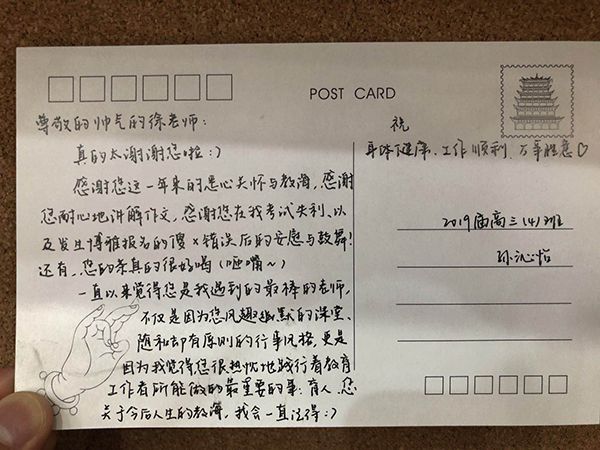 POST CARD
尊敬的帅气的徐老师:
真的太谢谢您啦:)
感谢您这一年来的悉心关怀与教诲,感谢
您耐心地讲解作文,感谢您在我考试失利、以
及发生博雅报名的傻×错误后的安慰与鼓舞!
还有,您的茶真的很好喝(咂嘴~)
一直以来觉得您是我遇到的最棒的老师,
不仅是因为您风趣幽默的课堂、
随和却有原则的行事风格,更是
因为我觉得您很热忱地践行着教育
工作者所能做的最重要的事:育人.您
关于今后人生的教诲,我会一直记得:)
祝
身体健康、工作顺利、万事胜意♡
2019届高三(4)班
孙沁怡